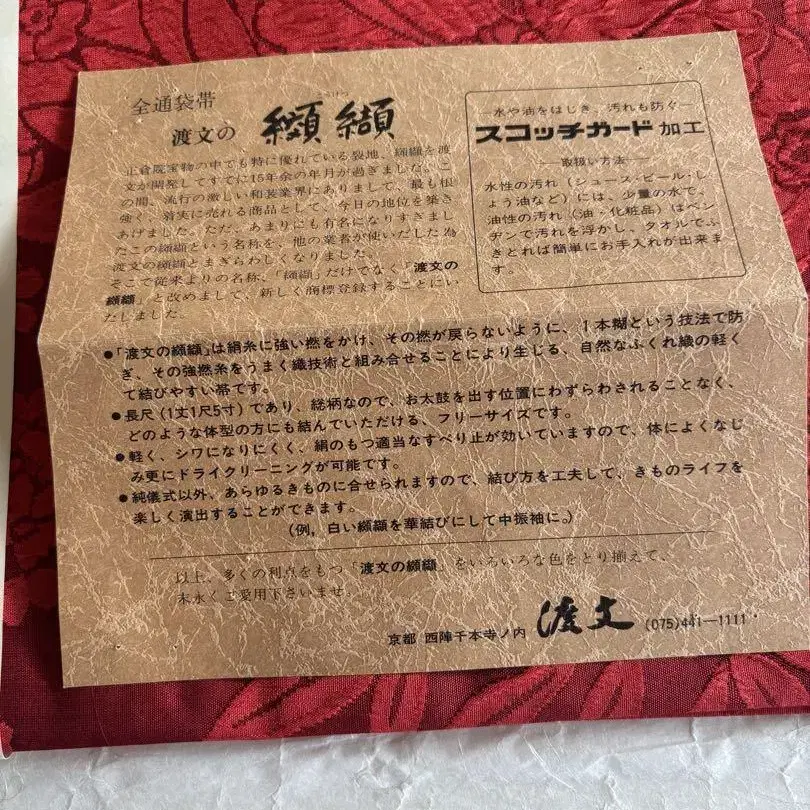 全通袋帯
こうけつ
渡文の 纐纈
正倉院宝物の中でも特に優れている裂地、纐纈を渡
文が開発してすでに15年余の年月が過ぎました。こ
の間、流行の激しい和装業界にありまして、最も根
強く、着実に売れる商品として、今日の地位を築き
あげました。ただ、あまりにも有名になりすぎまし
たこの纐纈という名称を、他の業者が使いだした為
渡文の纐纈とまぎらわしくなりました。
そこで従来よりの名称、「纐纈」だけでなく「渡文の
纐纈」と改めまして、新しく商標登録することにい
たしました。
水や油をはじき、汚れも防ぐ
スコッチガード 加工
取扱い方法
水性の汚れ(ジュース・ビール・し
ょう油など)には、少量の水で、
油性の汚れ(油・化粧品)はベン
ヂンで汚れを浮かし、タオルでふ
きとれば簡単にお手入れが出来ま
す。
●「渡文の纐纈」は絹糸に強い撚をかけ、その撚が戻らないように、1本糊という技法で防
ぎ、その強撚糸をうまく織技術と組み合せることにより生じる、自然なふくれ織の軽く
て結びやすい帯です。
●長尺(1丈1尺5寸)であり、総柄なので、お太鼓を出す位置にわずらわされることなく、
どのような体型の方にも結んでいただける、フリーサイズです。
●軽く、シワになりにくく、絹のもつ適当なすべり止が効いていますので、体によくなじ
み更にドライクリーニングが可能です。
●純儀式以外、あらゆるきものに合せられますので、結び方を工夫して、きものライフを
楽しく演出することができます。
(例，白い纐纈を華結びにして中振袖に。)
以上、多くの利点をもつ「渡文の纐纈」をいろいろな色をとり揃えて、
末永くご愛用下さいませ。
京都 西陣千本寺ノ内 渡文 (075)441—1111